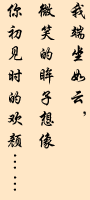 我端坐如云，
微笑的眸子想像
你初见时的欢颜……